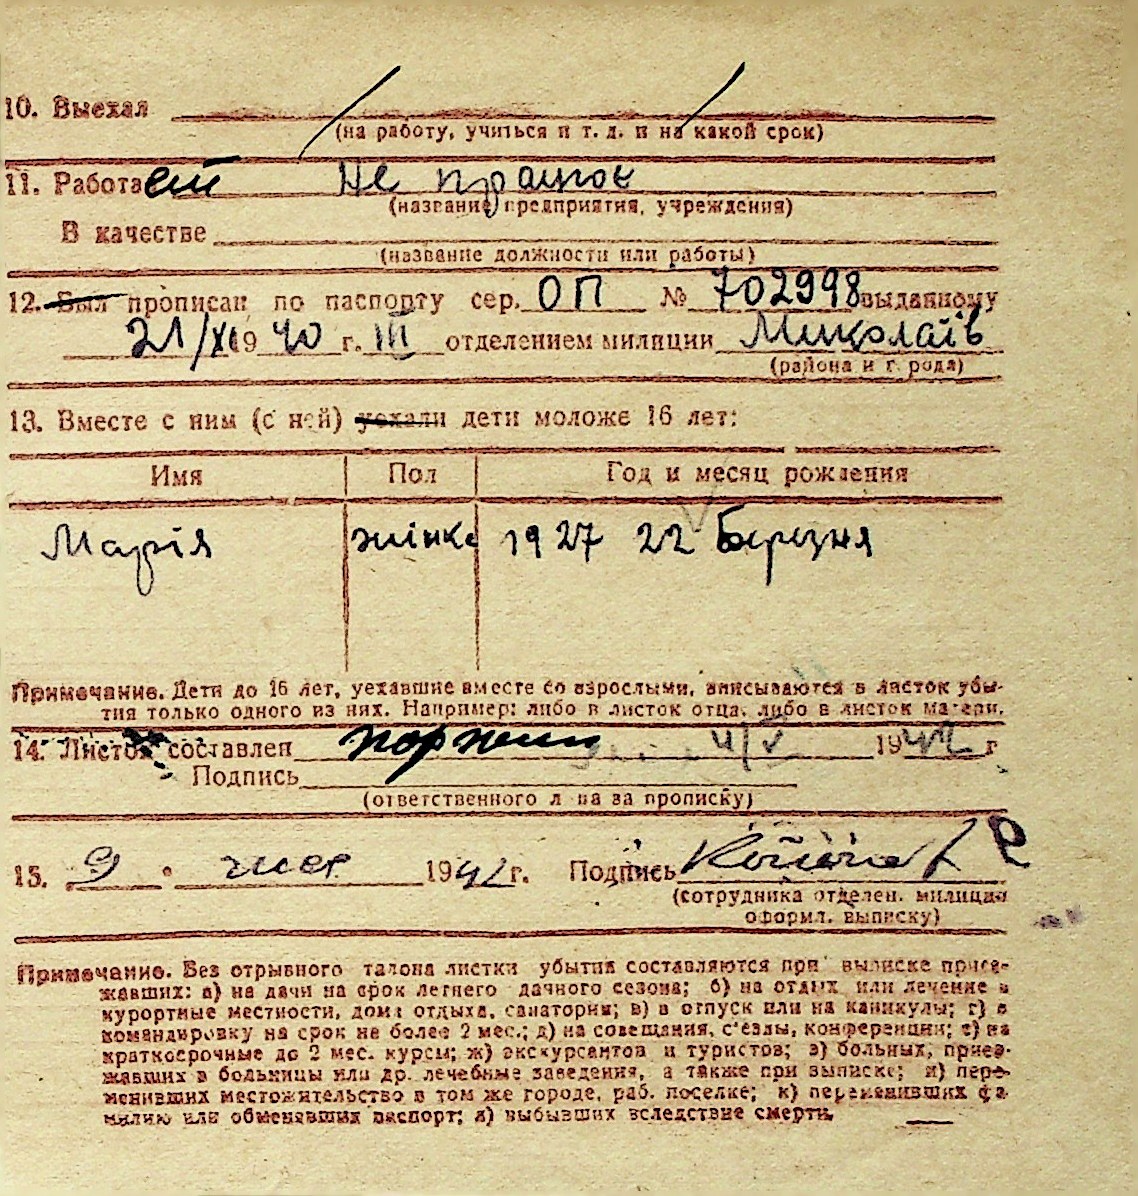 10. Выехал
(на работу, учиться и т. д. и на какой срок)
11. Работает Не працює
(название предприятия, учреждения)
В качестве
(название должности или работы)
12. Был прописан по паспорту сер. ОП № 702998 выданному
21/XI 1940 г. III отделением милиции Миколаїв
(района и города)
13. Вместе с ним (с ней) уехали дети моложе 16 лет:
Имя Пол Год и месяц рождения
Марія жінка 1927 22 Березня
Примечание. Дети до 16 лет, уехавшие вместе со взрослыми, вписываются в листок убы-
тия только одного из них. Например: либо в листок отца, либо в листок матери.
14. Листок составлен 4/V 1942 г
Подпись
(ответственного лица за прописку)
15. 9 • мая 1942 г. Подпись
(сотрудника отделен. милиции
оформ. выписку)
Примечание. Без отрывного талона листки убытия составляются при выписке приез-
жавших: а) на дачи на срок летнего дачного сезона; б) на отдых или лечение в
курортные местности, дома отдыха, санатории; в) в отпуск или на каникулы; г) в
командировку на срок не более 2 мес.; д) на совещания, с'езды, конференции; е) на
краткосрочные до 2 мес. курсы; ж) экскурсантов и туристов; з) больных, приез-
жавших в больницы или др. лечебные заведения, а также при выписке; и) пере-
менивших местожительство в том же городе, раб. поселке; к) переменивших фа-
милию или обменявших паспорт; л) выбывших вследствие смерти.